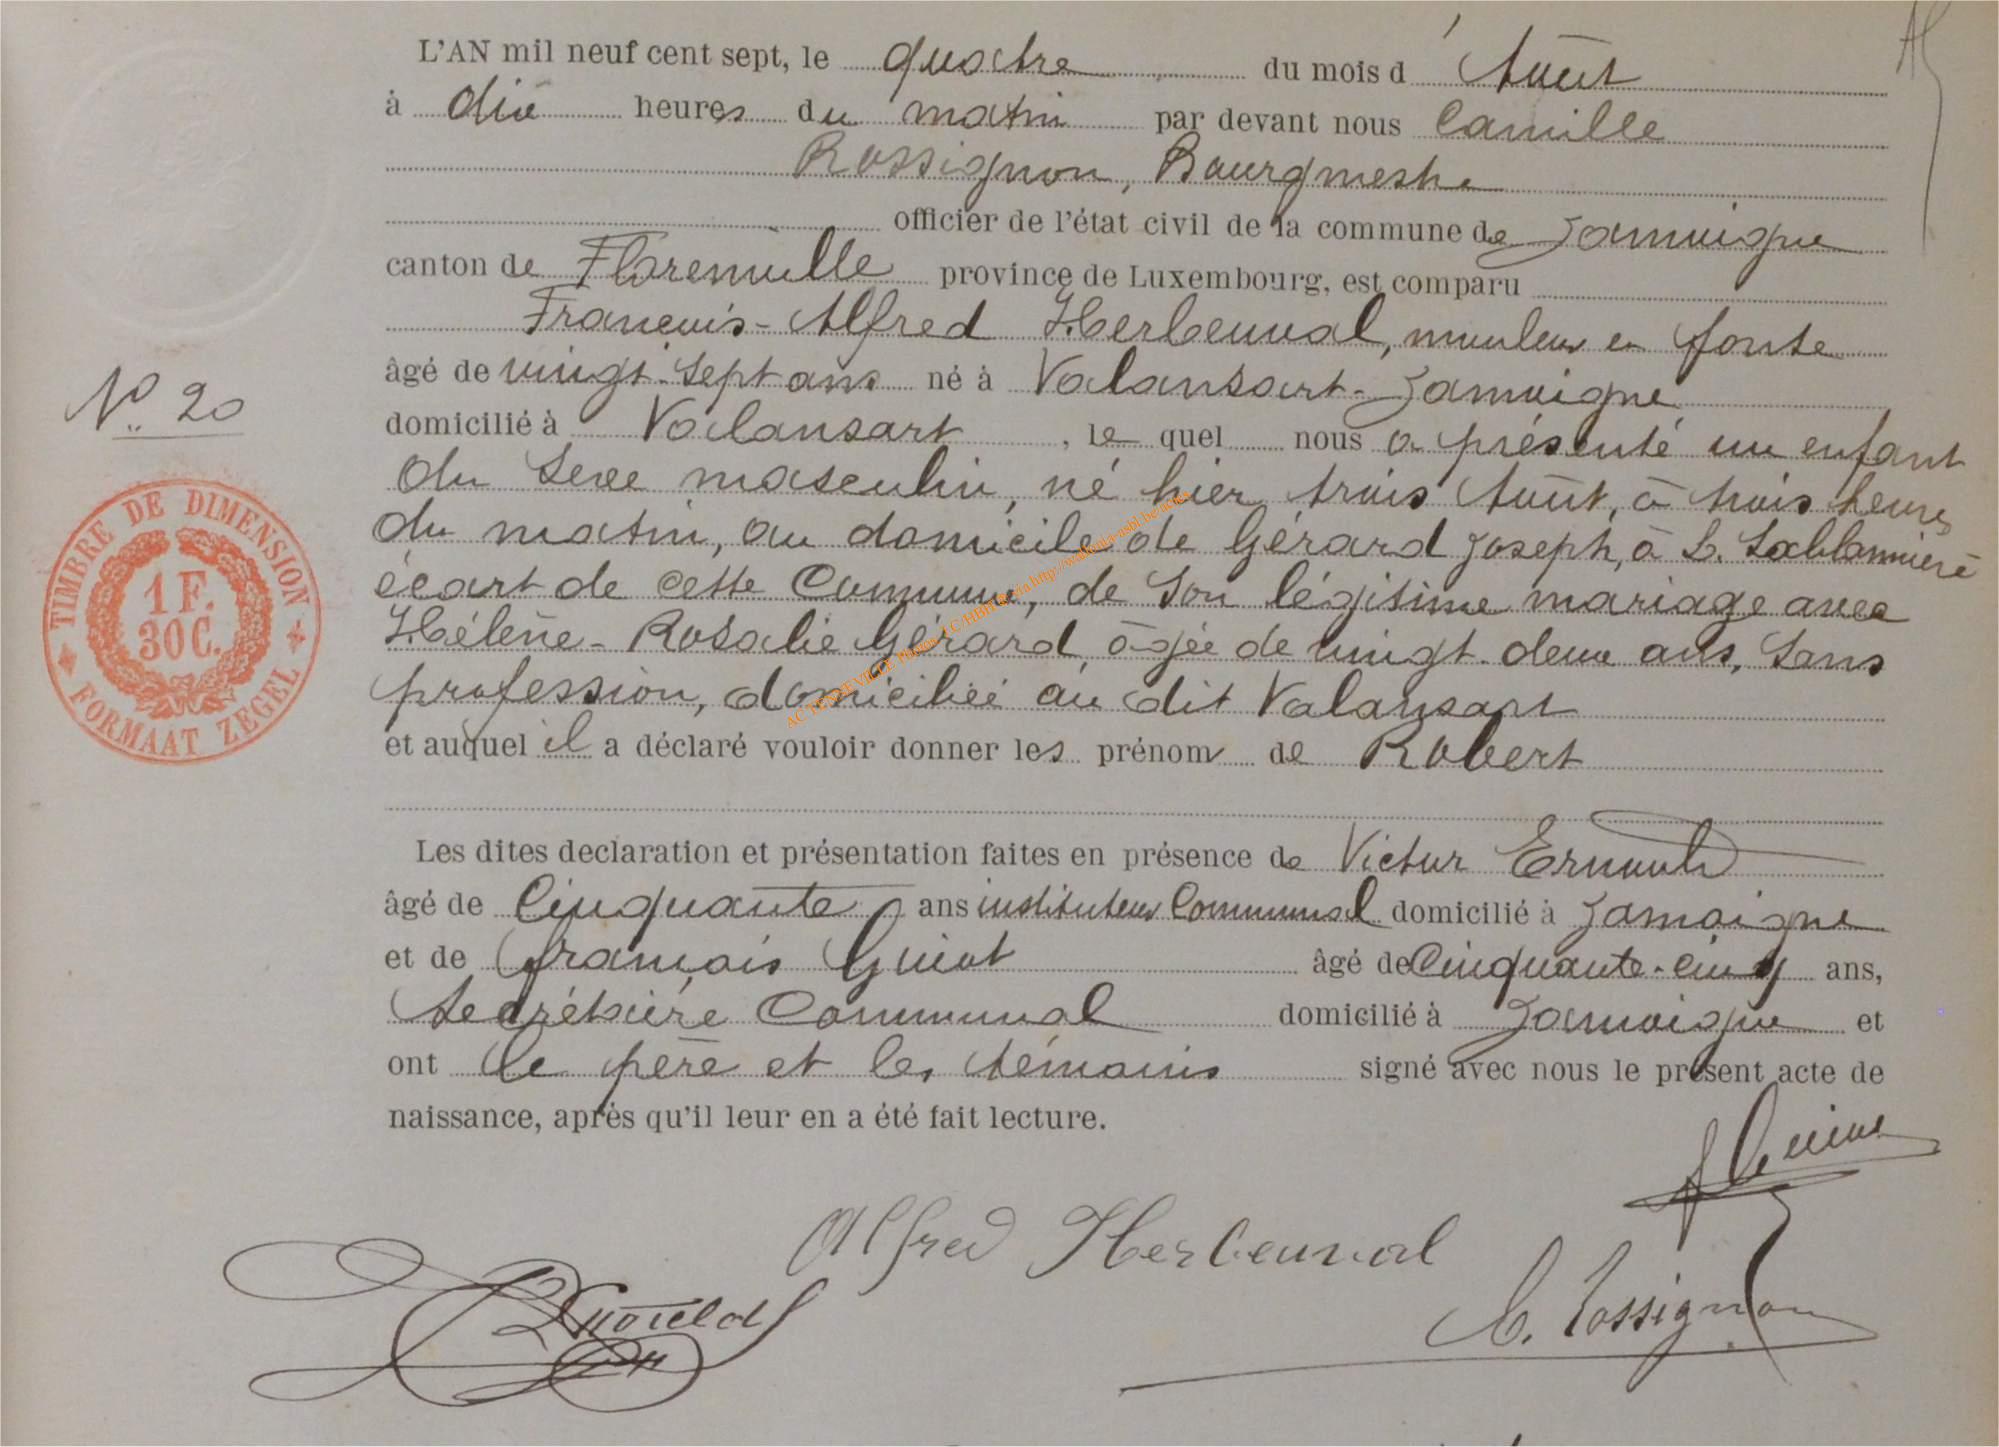 L'AN mil neuf cent sept, le quatre du mois d' Août
à dix heures du matin par devant nous Camille
Rossignon, Bourgmestre
officier de l'état civil de la commune de Jamoigne
canton de Florenville province de Luxembourg, est comparu
François-Alfred Herbeuval, mouleur en fonte
âgé de vingt-sept ans né à Valansart-Jamoigne
domicilié à Valansart, le quel nous a présenté un enfant
N° 20
du sexe masculin, né hier, trois Août, à trois heures
du matin, au domicile de Gérard Joseph, à La Sablonnière
écart de cette Commune, de son légitime mariage avec
Hélène-Rosalie Gérard, âgée de vingt-deux ans, sans
profession, domiciliée au dit Valansart
et auquel il a déclaré vouloir donner les prénom de Robert
TIMBRE DE DIMENSION
1 F.
30 C.
FORMAAT ZEGEL
Les dites declaration et présentation faites en présence de Victor
âgé de Cinquante ans instituteur Communal domicilié à Jamoigne
et de François Guiot âgé de Cinquante-cinq ans,
Secrétaire Communal domicilié à Jamoigne et
ont le père et les témoins signé avec nous le présent acte de
naissance, après qu'il leur en a été fait lecture.
Alfred Herbeuval
C. Rossignon